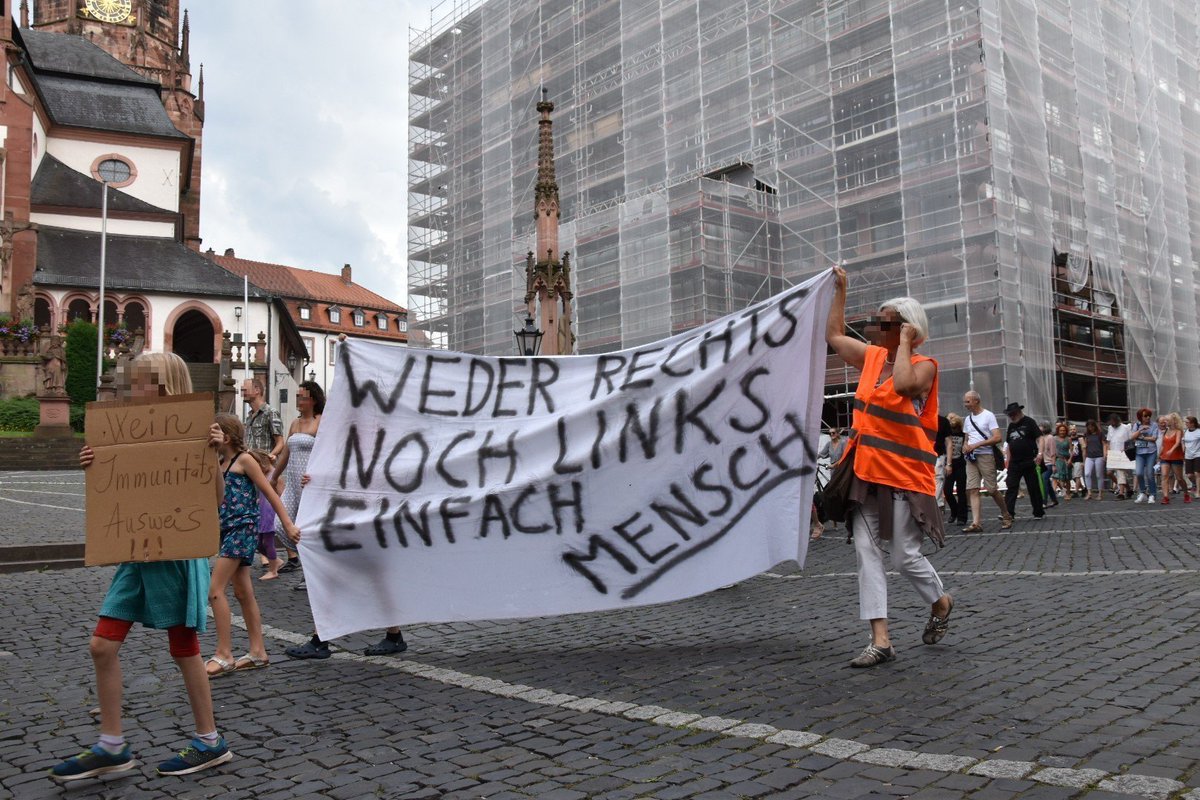 Wein
Immunitäts
Ausweis
!!!
WEDER RECHTS
NOCH LINKS
EINFACH
MENSCH